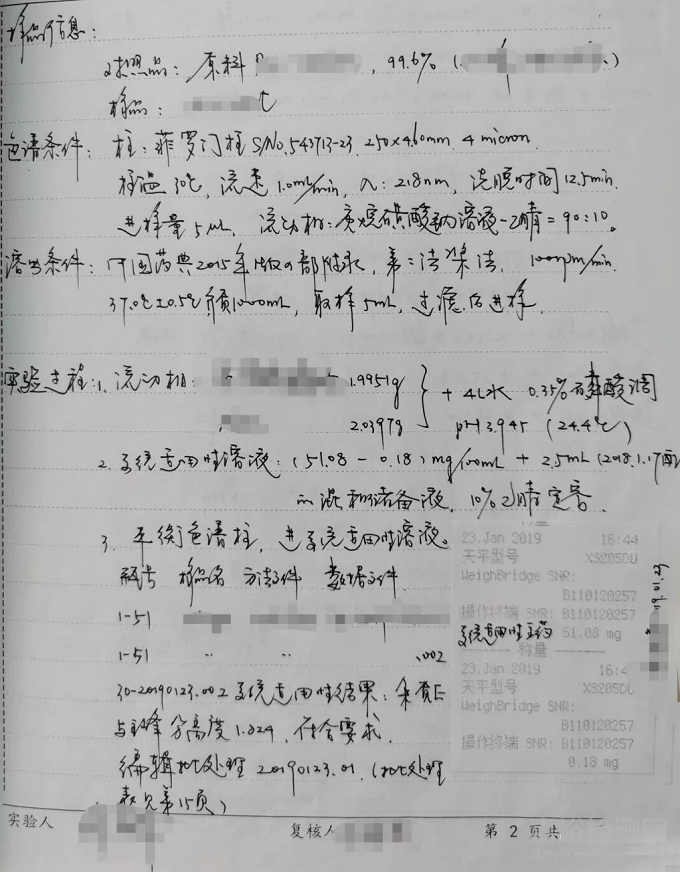 样品信息:
对照品: 原料 , 99.6% (
样品:
色谱条件: 柱: 菲罗门柱 S/No.543713-23 250×4.60mm 4 micron.
柱温30℃, 流速1.0ml/min, λ: 218nm, 洗脱时间12.5min.
进样量5μL, 流动相: 庚烷磺酸钠溶液-乙腈=90:10。
溶出条件: 中国药典2015年版四部附录, 第二法桨法, 100rpm/min.
37.0℃±0.5℃ 介质1000mL, 取样5mL, 过滤后进样.
实验过程: 1. 流动相: 1.9951g
2.0397g
+ 4L水 0.35%磷酸调
pH 3.945 (24.4℃)
2. 系统适用性溶液: (51.08 - 0.18) mg/100mL + 2.5mL (2018.1.17配
的混和储备液, 10%乙腈定容.
3. 平衡色谱柱, 进系统适用性溶液。
瓶号 样品名 方法文件 数据文件
1-51
1-51 〃 〃 .002
30-20190123.002 系统适用性结果: 杂质E
与主峰分离度1.824, 符合要求.
编辑批处理 20190123.01. (批处理
表见第15页)
称量
23.Jan 2019 16:44
天平型号 XS205DU
WeighBridge SNR:
B110120257
操作终端 SNR: B110120257
系统适用性主药 51.08 mg
称量
23.Jan 2019 16:4
天平型号 XS205DU
WeighBridge SNR:
B110120257
操作终端 SNR: B110120257
0.18 mg
实验人 复核人 第 2 页共